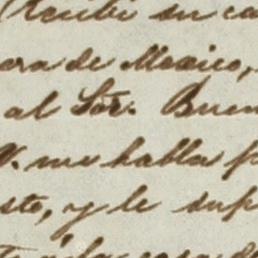 Recibí su ca
ora de Mexico,
al Sor. Buen
V. me habla p
ste, y le sup